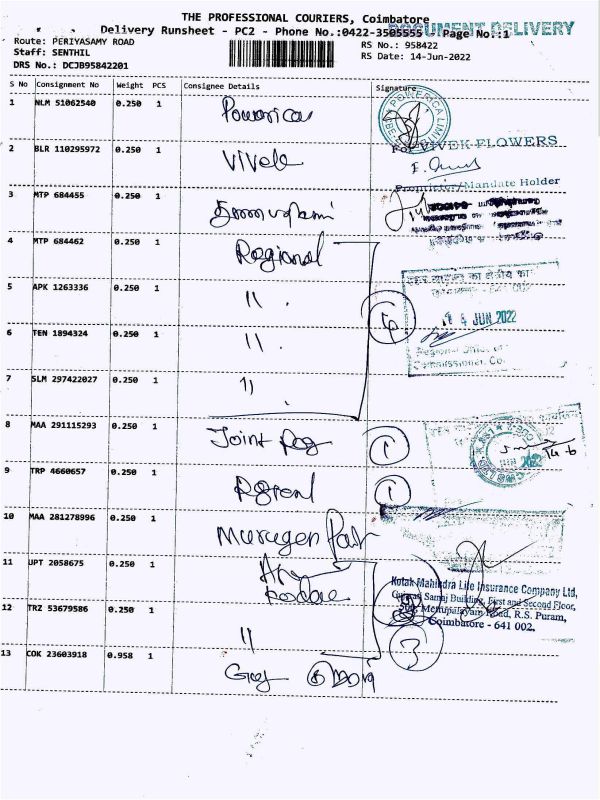 THE PROFESSIONAL COURIERS, Coimbatore
DOCUMENT DELIVERY
Delivery Runsheet - PC2 - Phone No.:0422-3505555 Page No.:1
Route: PERIYASAMY ROAD
RS No.: 958422
Staff: SENTHIL
RS Date: 14-Jun-2022
DRS No.: DCJB95842201
S No Consignment No Weight PCS Consignee Details Signature
1 NLM 51062540 0.250 1 Powerica
POWERICA LIMITED
2 BLR 110295972 0.250 1 Vivek
For VIVEK FLOWERS
Proprietor/Mandate Holder
3 MTP 684455 0.250 1
4 MTP 684462 0.250 1 Regional
5 APK 1263336 0.250 1 11 .
4 JUN 2022
6 TEN 1894324 0.250 1 11 .
Regional Office
Commissioner, Co
7 SLM 297422027 0.250 1 11
8 MAA 291115293 0.250 1 Joint Reg 1
JUN 2022
14-6
9 TRP 4660657 0.250 1 1
10 MAA 281278996 0.250 1 Murugen
11 UPT 2058675 0.250 1
Kotak Mahindra Life Insurance Company Ltd,
Gujarati Samaj Building, First and Second Floor,
12 TRZ 53679586 0.250 1 11
Mettupalayam Road, R.S. Puram,
Coimbatore - 641 002.
3
13 COK 23603918 0.958 1